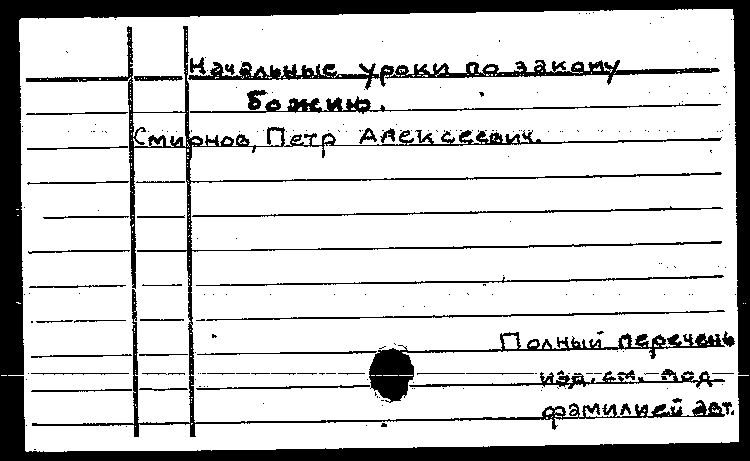 Начальные уроки по закону
Божию.
Смирнов, Петр Алексеевич.
Полный перечень
изд. см. под
фамилией авт.